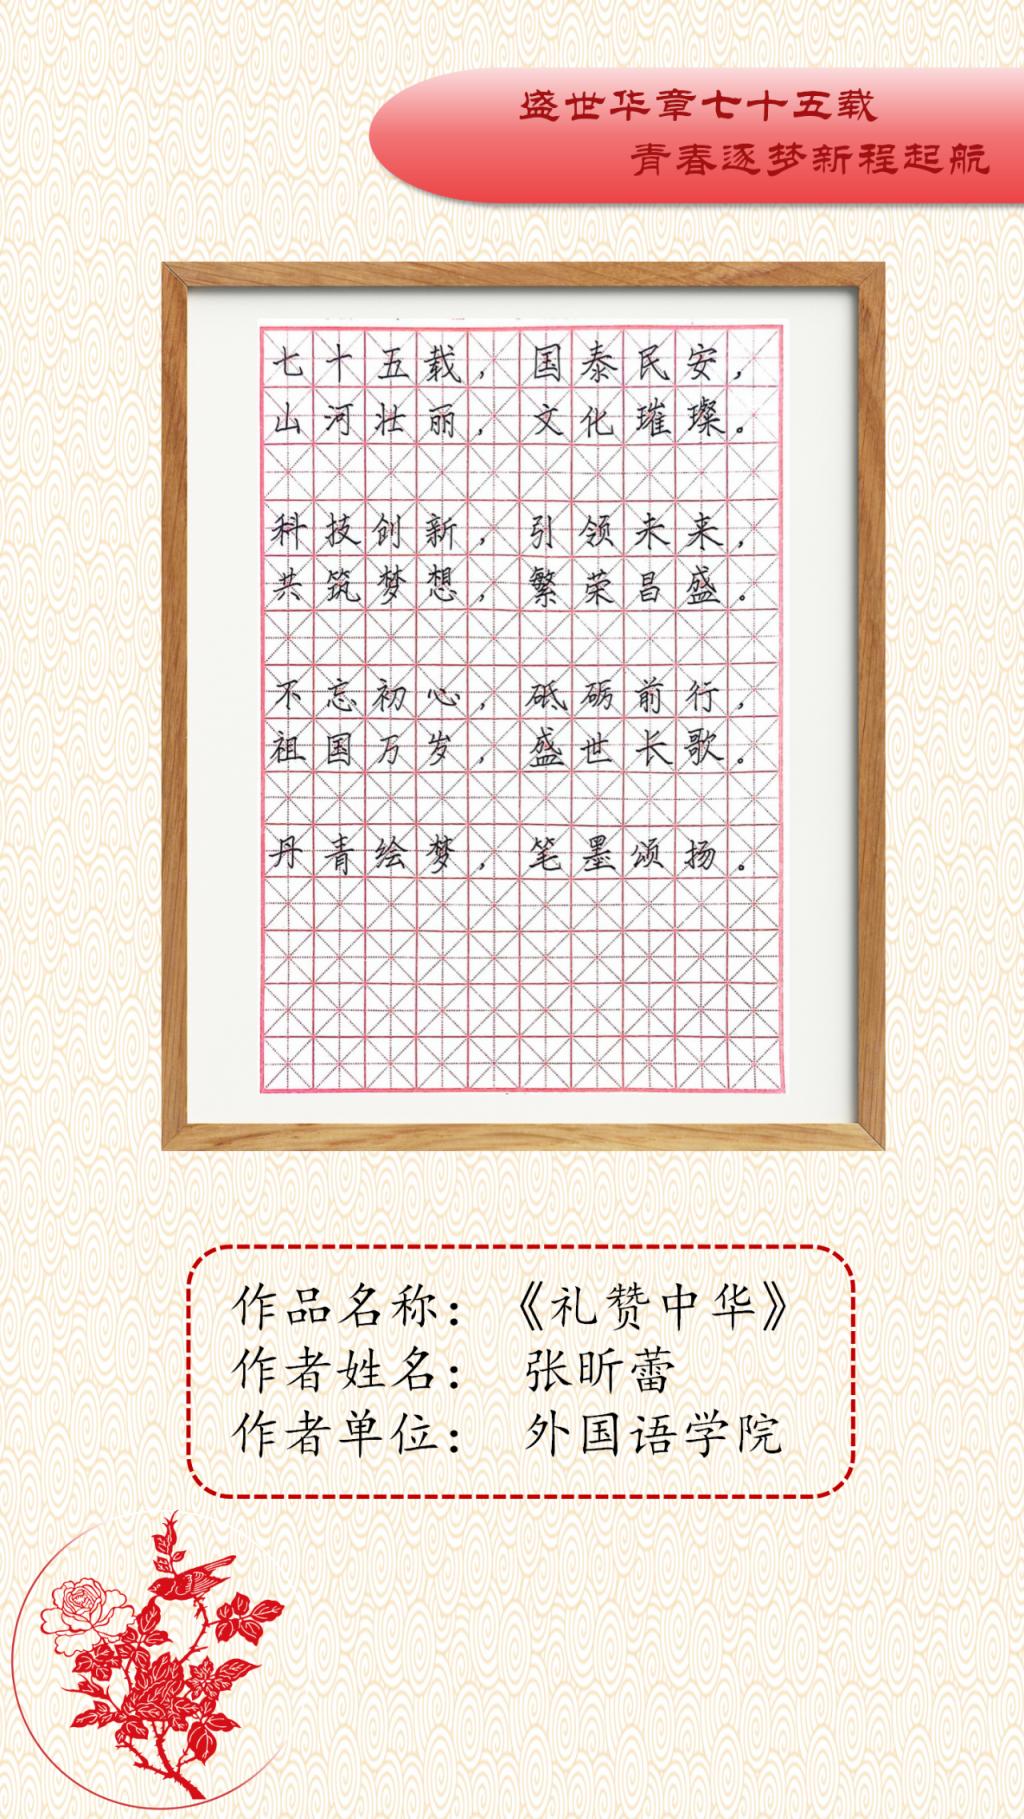 盛世华章七十五载
青春逐梦新程起航
七十五载，国泰民安，
山河壮丽，文化璀璨。
科技创新，引领未来，
共筑梦想，繁荣昌盛。
不忘初心，砥砺前行，
祖国万岁，盛世长歌。
丹青绘梦，笔墨颂扬。
作品名称：《礼赞中华》
作者姓名： 张昕蕾
作者单位： 外国语学院